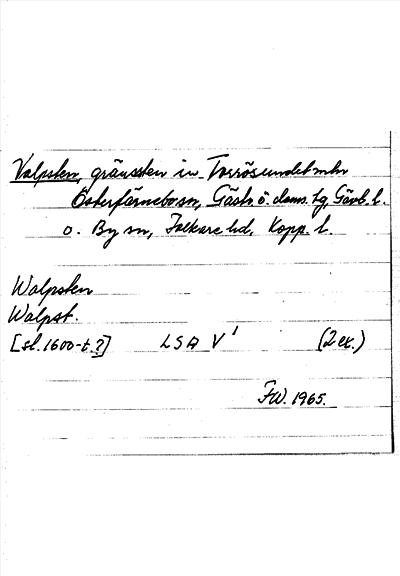 Valpsten, gränssten i Torrösundet mln
Österfärnebo sn, Gästr. ö. doms. tg, Gävb. l.
o. By sn, Folkare hd, Kopp. l.
Walpsten
Walpst.
[sl. 1600-t. ?] LSA V¹ (2 ex.)
FW. 1965.